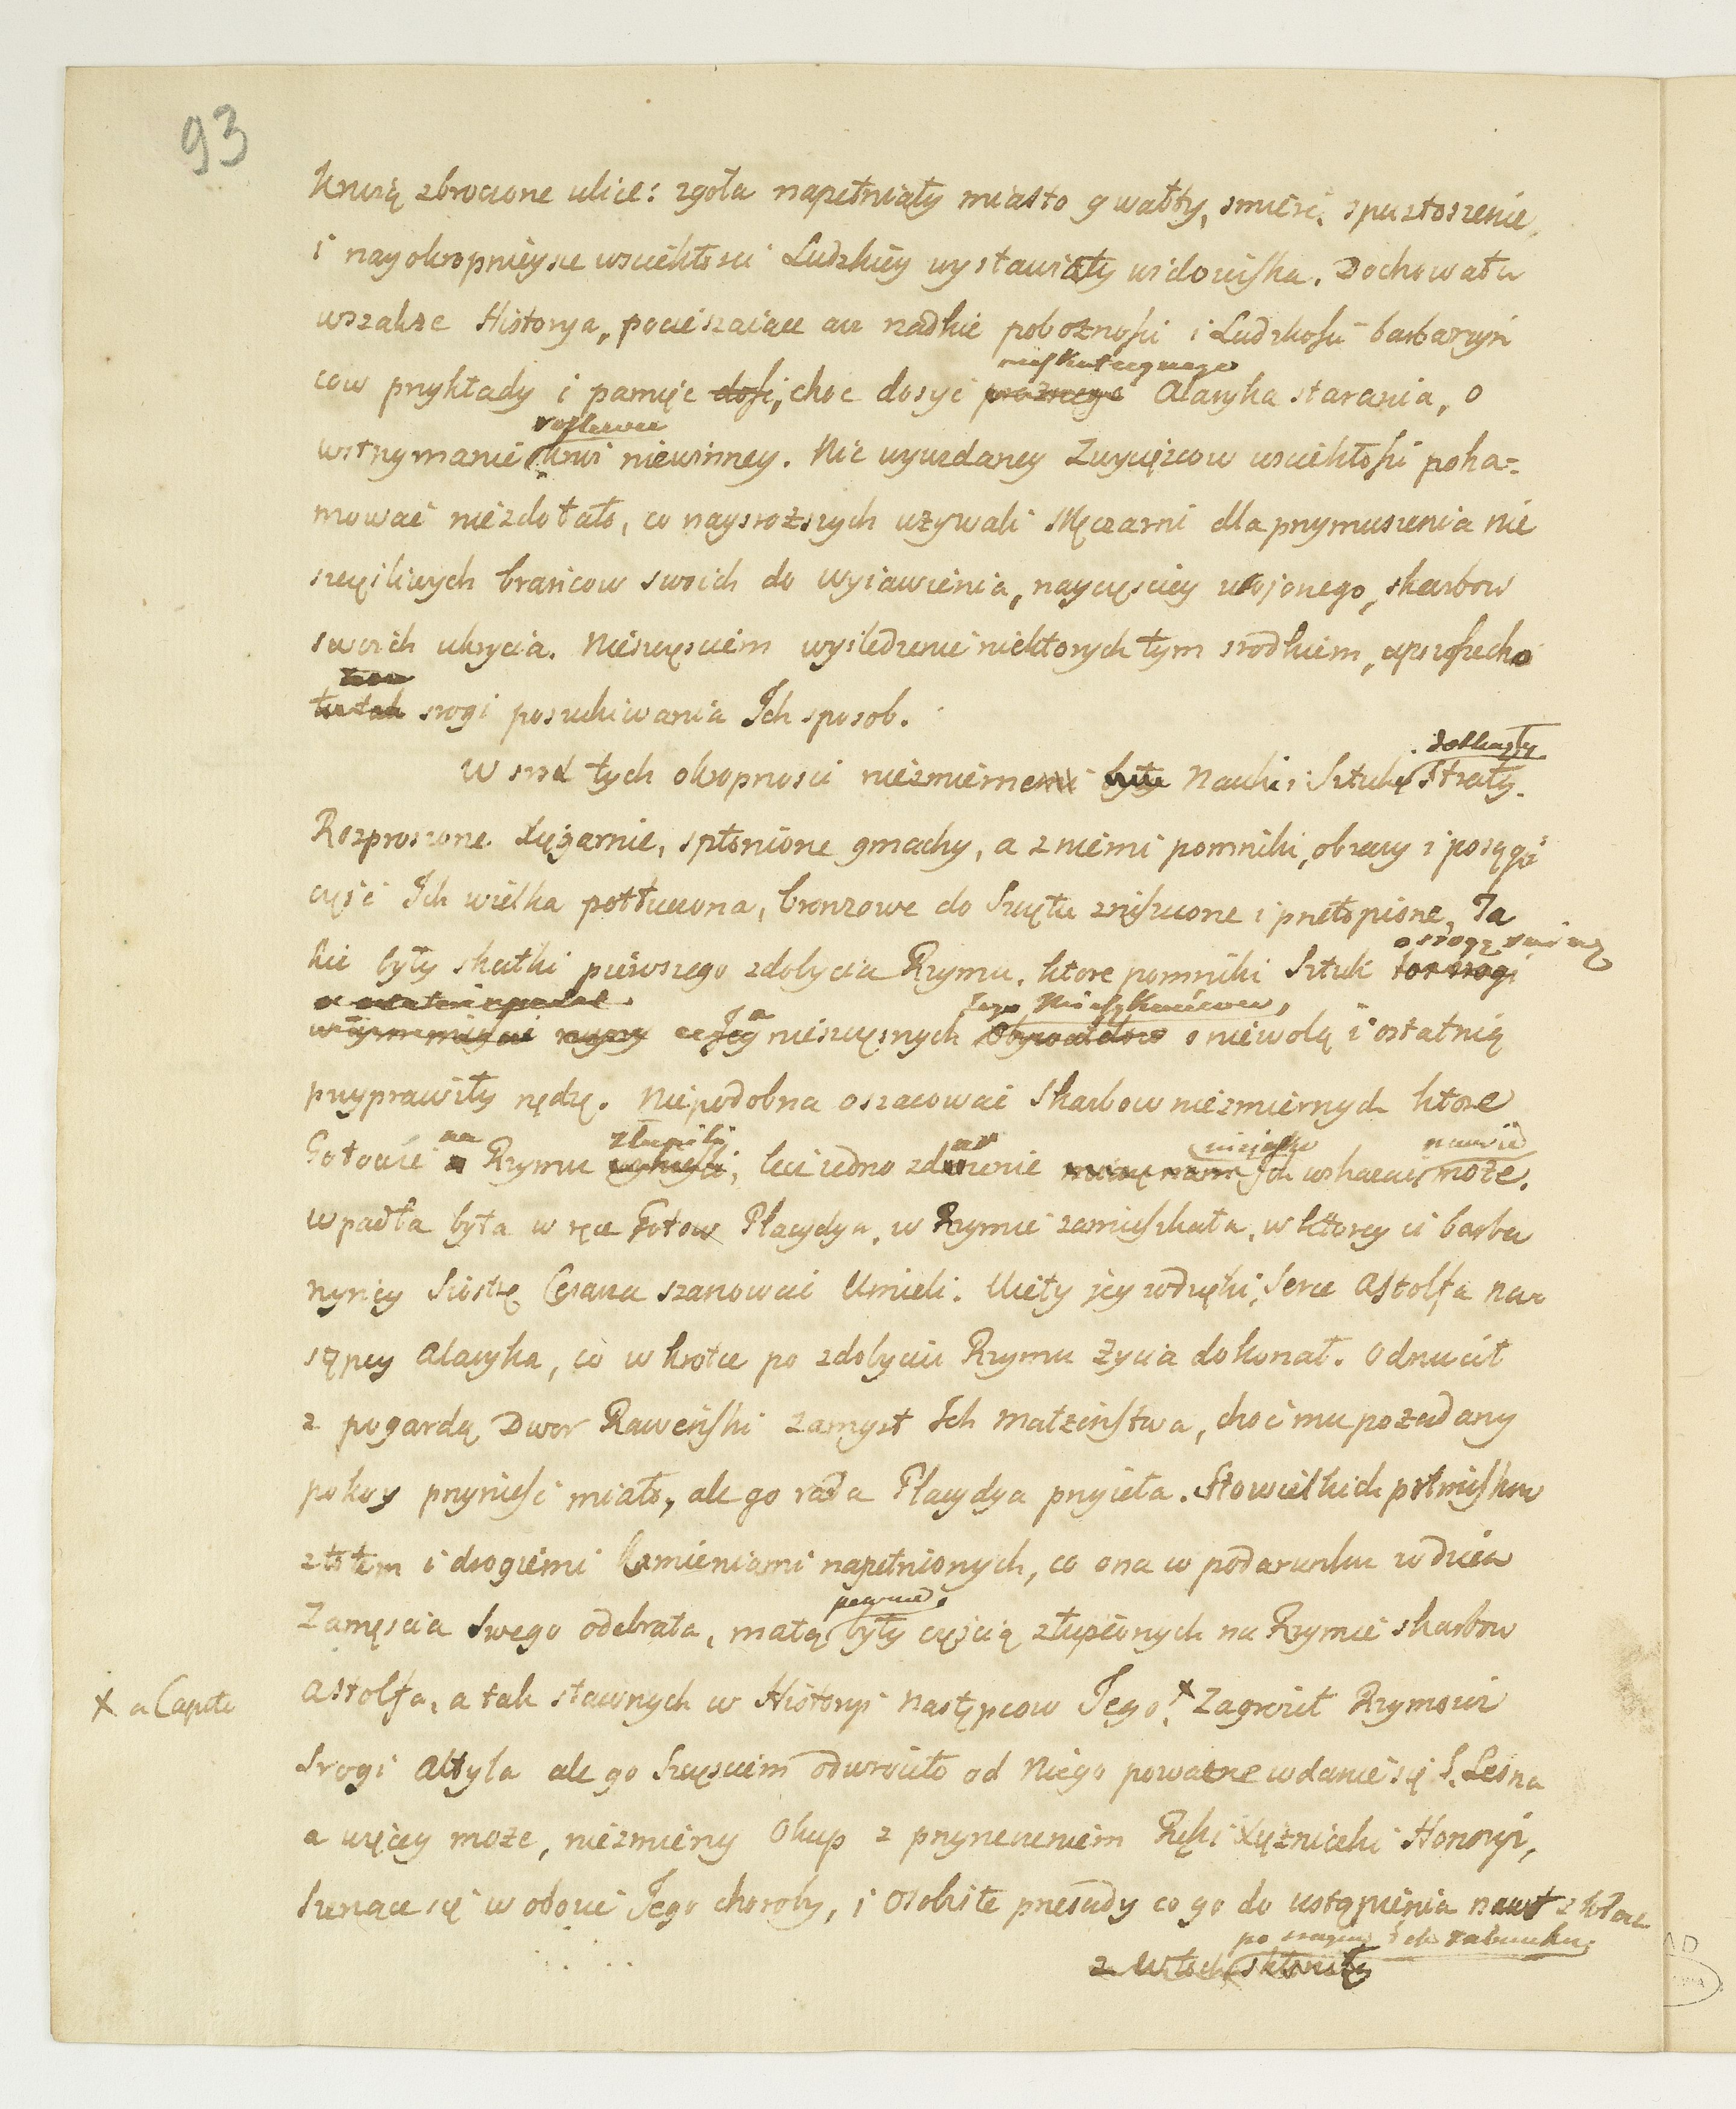 93
Krwią zbrocone ulice: zgoła napełniały miasto gwałty, smierć, spustoszenie,
i nayokropnieysze wsciekłosci Ludzkiey wystawiały widowiska. Dochowała
wszakze Historya, pocieszaiące acz rzadkie pobożnosci i Ludzkosci barbarzyń
nieskutecznego
cow przykłady i pamięć dosi, choc dosyć prożnego Alaryka starania, o
rozlewu
wstrzymanie krwi niewinney. Nic wyuzdaney Zwycięzcow wsciekłosci poha=
mować niezdołało, co naysroższych używali Męczarni dla przymuszenia nie
szczęśliwych brańcow swoich do wyiawienia, nayczęsciey urojonego, skarbow
swoich ukrycia. Nieszczęsciem wysledzenie niektorych tym srodkiem, upowszechni
ło tak srogi poszukiwania Ich sposob.
dotknęły
W srod tych okropnosci niezmierne były Nauki i Sztuki straty.
Rozproszone Xięgarnie, spłonione gmachy, a z niemi pomniki, obrazy i posągi
częsć Ich wielka potłuczona, bronzowe do Szczętu zniszczone i przetopione, Ta
kie były skutki pierwszego zdobycia Rzymu, ktore pomniki Sztuk o srogą ruinę
Jego Mieszkańcow,
a Jego nieszczęsnych Obywatelow o niewolą i ostatnią
przyprawiły nędzę. Niepodobna oszacować Skarbow niezmiernych ktore
na złupili niejako nawie
Gotowie z Rzymu wynieśli, lecz iedno zdarzenie Ich wskazać może.
Wpadła była w ręce Gotow Placydya, w Rzymie zamieszkała, w ktorey ci barba
rzyńcy Siostrę Cesarza szanować Umieli. Uięły jey wdzięki, Serce Astolfa nas
tępcy Alaryka, co w krotce po zdobyciu Rzymu życia dokonał. Odrzucił
z pogardą Dwor Raweński zamysł Ich Małżeństwa, choć mu pożądany
pokoy przynieść miało, ale go rada Placydya przyięła. Sto wielkich połmiskow
złotem i drogiemi kamieniami napełnionych, co ona w podarunku w dzień
pewnie
Zamęscia Swego odebrała, małą były częscią złupionych na Rzymie skarbow
x a Capite
Astolfa, a tak sławnych w Historyi następcow Jego. x Zagroził Rzymowi
Srogi Attyla ale go Szczęsciem odwrociło od Niego poważne wdanie się S. Leona
a więcey może, niezmierny Okup z przyrzeczeniem Ręki Xiężniczki Honoryi,
Szerzące się w obozie Jego choroby, i Osobiste przesądy co go do ustąpienia nawet z
po srogim ich rabunku
z Włoch skłoniły